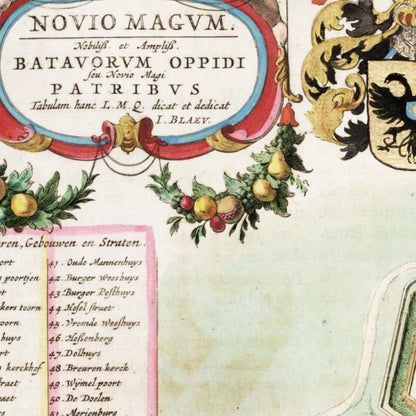 NOVIO MAGVM.
Nobiliß. et Ampliß.
BATAVORVM OPPIDI
seu Novio Magi
PATRIBVS
Tabulam hanc L.M.Q. dicat et dedicat
I. BLAEV.
ren, Gebouwen en Straten.
ort
41. Oude Mannenhuys
poortjen
42. Burger Weeshuys
rt
43. Burger Pesthuys
kers toorn
44. Hesel straet
oorn
45. Vromde Weeshuys
huys
46. Heßenberg
rt
47. Dolhuys
kerckhof
48. Breuren kerck.
raet
49. Wymel poort
aet
50. De Doelen
51. Merienburg